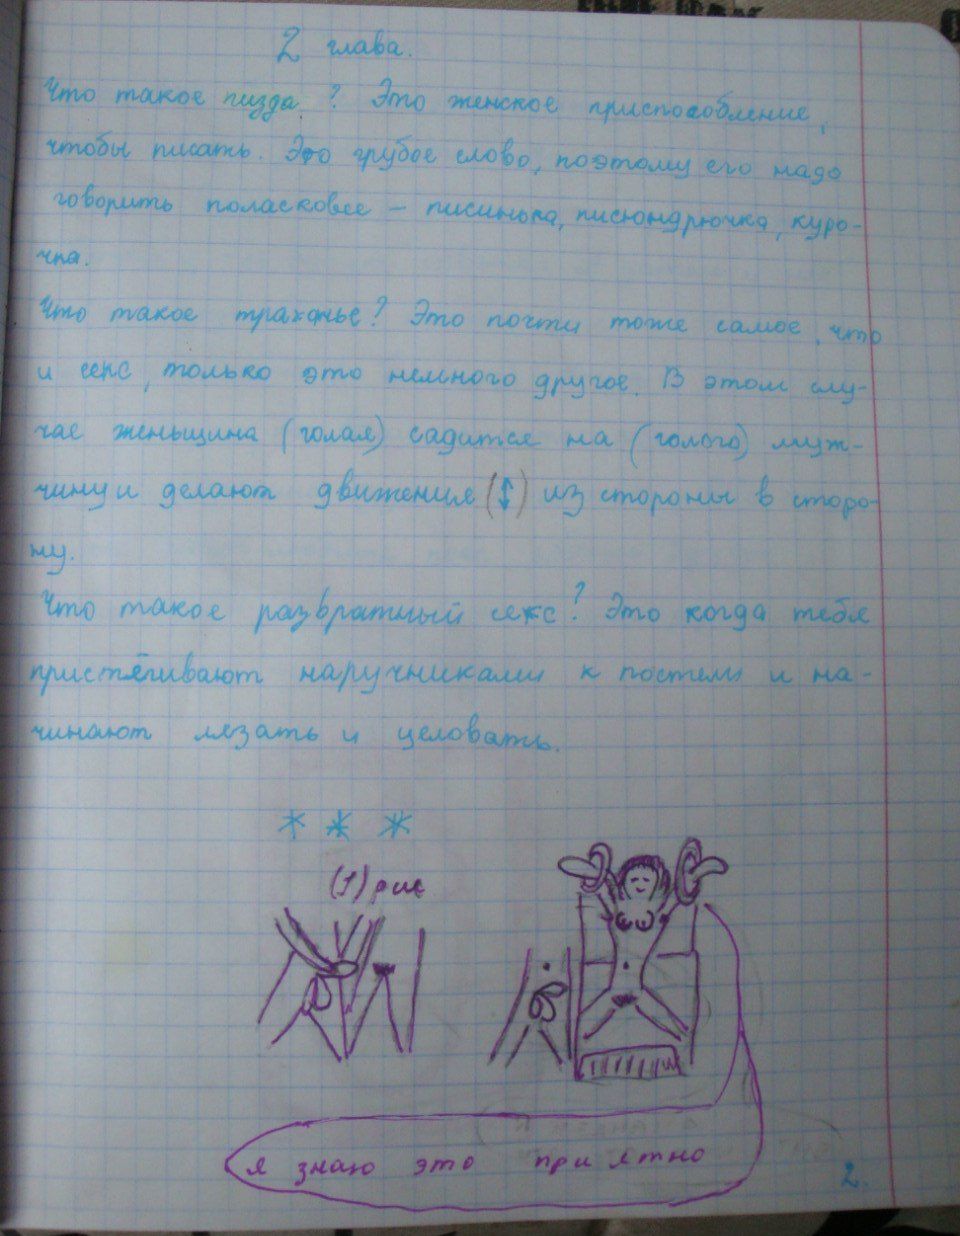 2 глава.
Что такое пизда ? Это женское приспособление,
чтобы писать. Это грубое слово, поэтому его надо
говорить поласковее – писинька, писюндрючка, куро-
чка.
Что такое траханье? Это почти тоже самое, что
и секс, только это немного другое. В этом слу-
чае женьщина (голая) садится на (голого) муж-
чину и делают движения (↕) из стороны в сторо-
ну.
Что такое развратный секс? Это когда тебя
пристягивают наручниками к постели и на-
чинают лязать и целовать.
* * *
(1) рис
я знаю это приятно
2.